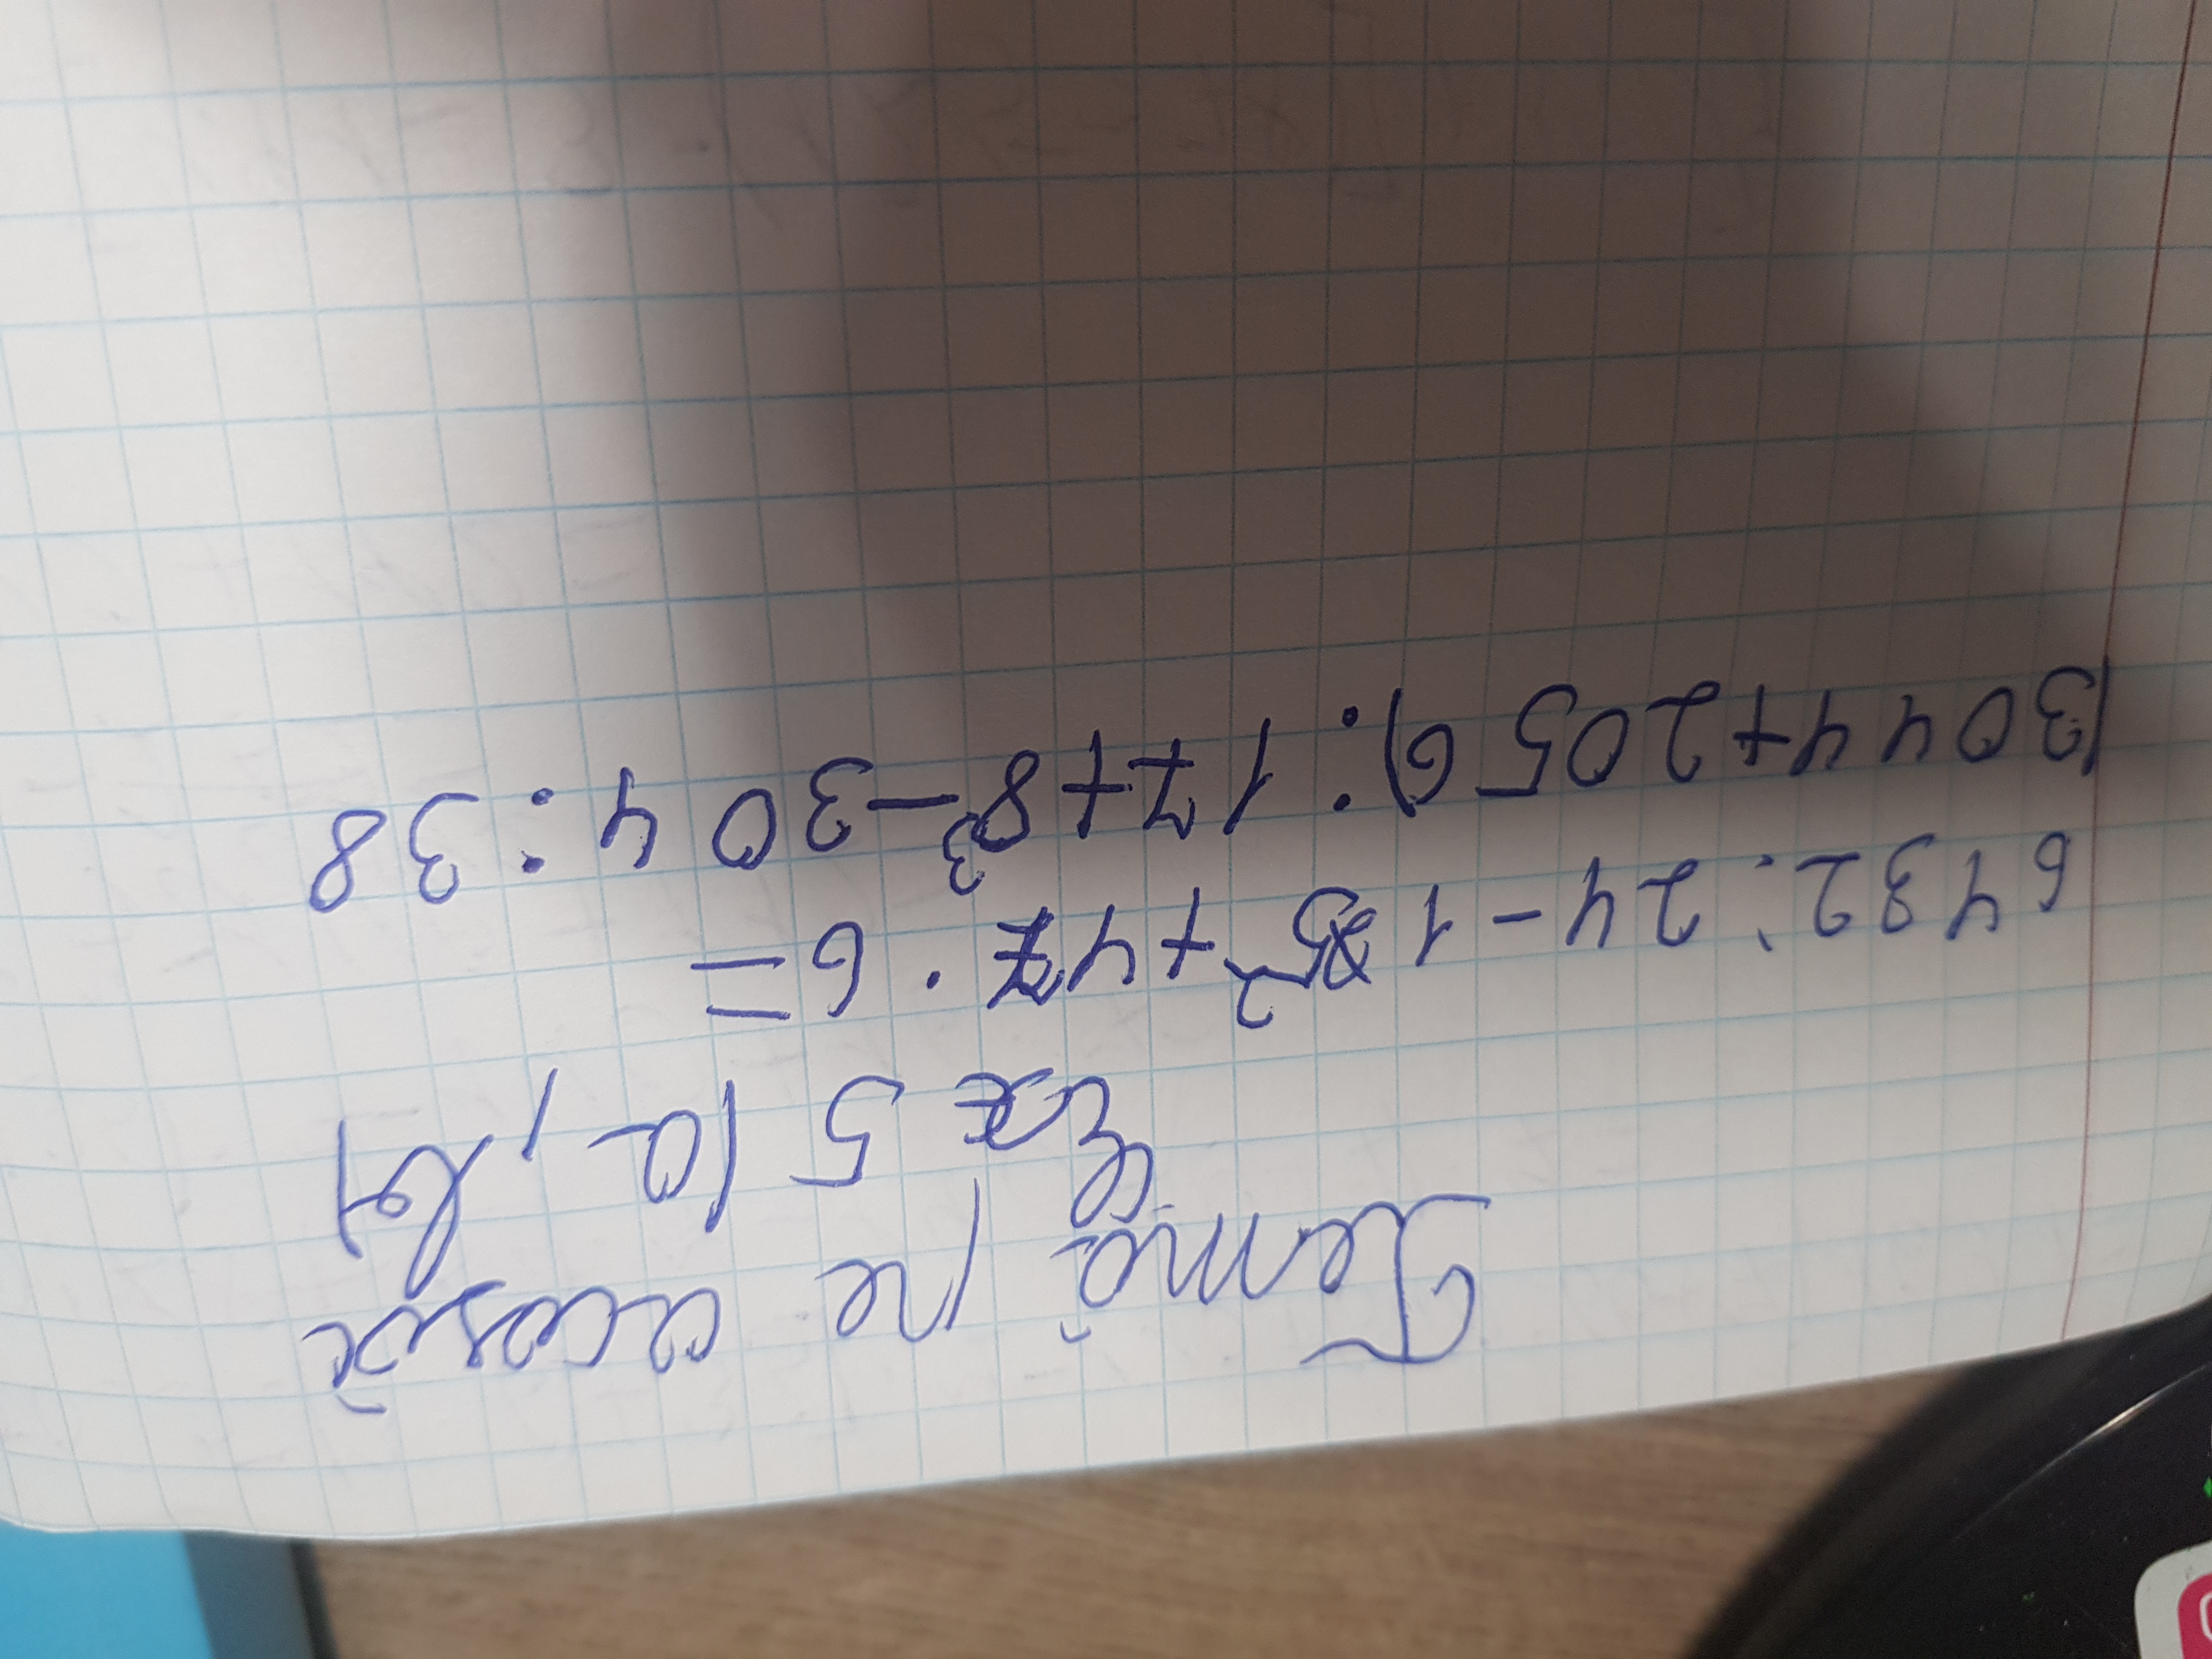 Temă pe acasă
Ex 5 (a, b)
6432 : 24 - 15² + 47 · 6 =
(3044 + 2056) : 17 + 8³ - 304 : 38